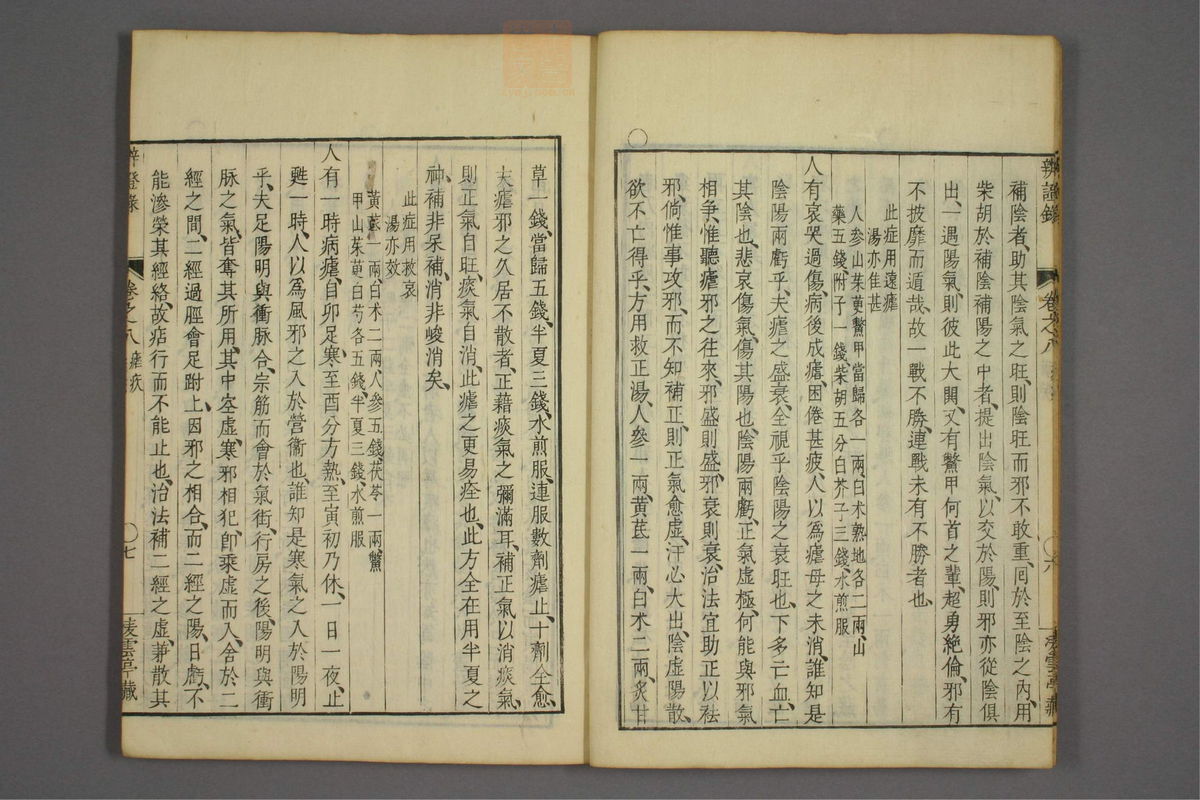 辨證錄 卷之八
補陰者、助其陰氣之旺、則陰旺而邪不敢重、囘於至陰之內、用
柴胡於補陰補陽之中者、提出陰氣、以交於陽、則邪亦從陰俱
出、一遇陽氣、則彼此大鬨、又有鱉甲何首之輩、超勇絶倫、邪有
不披靡而遁哉、故一戰不勝、連戰未有不勝者也、
此症用遠瘧
湯亦佳甚
人參山茱萸鱉甲當歸各一兩、白朮熟地各二兩、山
藥五錢、附子一錢、柴胡五分白芥子三錢、水煎服
人有哀哭過傷、病後成瘧、困倦甚疲、人以爲瘧母之未消、誰知是
陰陽兩虧乎、夫瘧之盛衰、全視乎陰陽之衰旺也、下多亡血、亡
其陰也、悲哀傷氣、傷其陽也、陰陽兩虧、正氣虛極、何能與邪氣
相爭、惟聽瘧邪之往來、邪盛則盛、邪衰則衰、治法宜助正以祛
邪、倘惟事攻邪、而不知補正、則正氣愈虛、汗必大出、陰虛陽散、
欲不亡得乎、方用救正湯、人參一兩、黃芪一兩、白朮二兩、炙甘
草一錢、當歸五錢、半夏三錢、水煎服、連服數劑瘧止、十劑全愈、
夫瘧邪之久居不散者、正藉痰氣之彌滿耳、補正氣以消痰氣、
則正氣自旺、痰氣自消、此瘧之更易痊也、此方全在用半夏之
神、補非呆補、消非峻消矣、
此症用救哀
湯亦效
黃芪一兩、白朮二兩、人參五錢、茯苓一兩、鱉
甲山茱萸白芍各五錢、半夏三錢、水煎服
人有一時病瘧、自卯足寒、至酉分方熱、至寅初乃休、一日一夜、止
甦一時、人以爲風邪之入於營衞也、誰知是寒氣之入於陽明
乎、夫足陽明與衝脉合、宗筋而會於氣街、行房之後、陽明與衝
脉之氣、皆奪其所用、其中空虛、寒邪相犯、卽乘虛而入、舍於二
經之間、二經過脛會足跗上、因邪之相合、而二經之陽、日虧、不
能滲榮其經絡、故痁行而不能止也、治法補二經之虛、兼散其
辨證錄 卷之八 瘧疾 七 凌雲亭藏